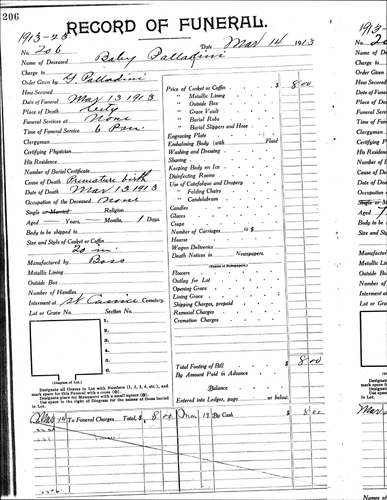 206
RECORD OF FUNERAL.
1913-23
No. 206 Date Mar 14 1913
Name of Deceased Baby Palladini
Charge to
Order Given by G. Palladini
How Secured
Date of Funeral Mar 13 1913
Place of Death
Funeral Services at None
Time of Funeral Service 6 P.m.
Clergyman
Certifying Physician
His Residence
Number of Burial Certificate
Cause of Death Premature birth
Date of Death Mar 13 1913
Occupation of the Deceased none
Single or Married Religion
Aged Years, Months, 1 Days.
Body to be shipped to
Size and Style of Casket or Coffin
20 in
Manufactured by Boss
Metallic Lining
Outside Box
Number of Handles
Interment at St Cemetery.
Lot or Grave No. Section No.
1.
2.
3.
4.
5.
6.
(Diagram of Lot.)
Designate all Graves in Lot with Numbers (1, 2, 3, 4, etc.), and
mark space for this Funeral with a cross (⊗).
Designate place for Monument with a small square (□).
Use space to the right of Diagram for the names of those buried
in Lot.
Price of Casket or Coffin $ 8.00
" Metallic Lining
" Outside Box
" Grave Vault
" Burial Robe
" Burial Slippers and Hose
Engraving Plate
Embalming Body (with Fluid
Washing and Dressing
Shaving
Keeping Body on Ice
Disinfecting Rooms
Use of Catafalque and Drapery
" Folding Chairs
" Candelabrum
Candles
Gloves
Crape
Number of Carriages @ $
Hearse
Wagon Deliveries
Death Notices in Newspapers.
(Names of Newspapers.)
Flowers
Outlay for Lot
Opening Grave
Lining Grave
Shipping Charges, prepaid
Removal Charges
Cremation Charges
Total Footing of Bill $ 8.00
By Amount Paid in Advance
Balance
Entered into Ledger, page or below.
Mar 14 To Funeral Charges Total, $ 8.00 Mar 19 By Cash $ 8.00